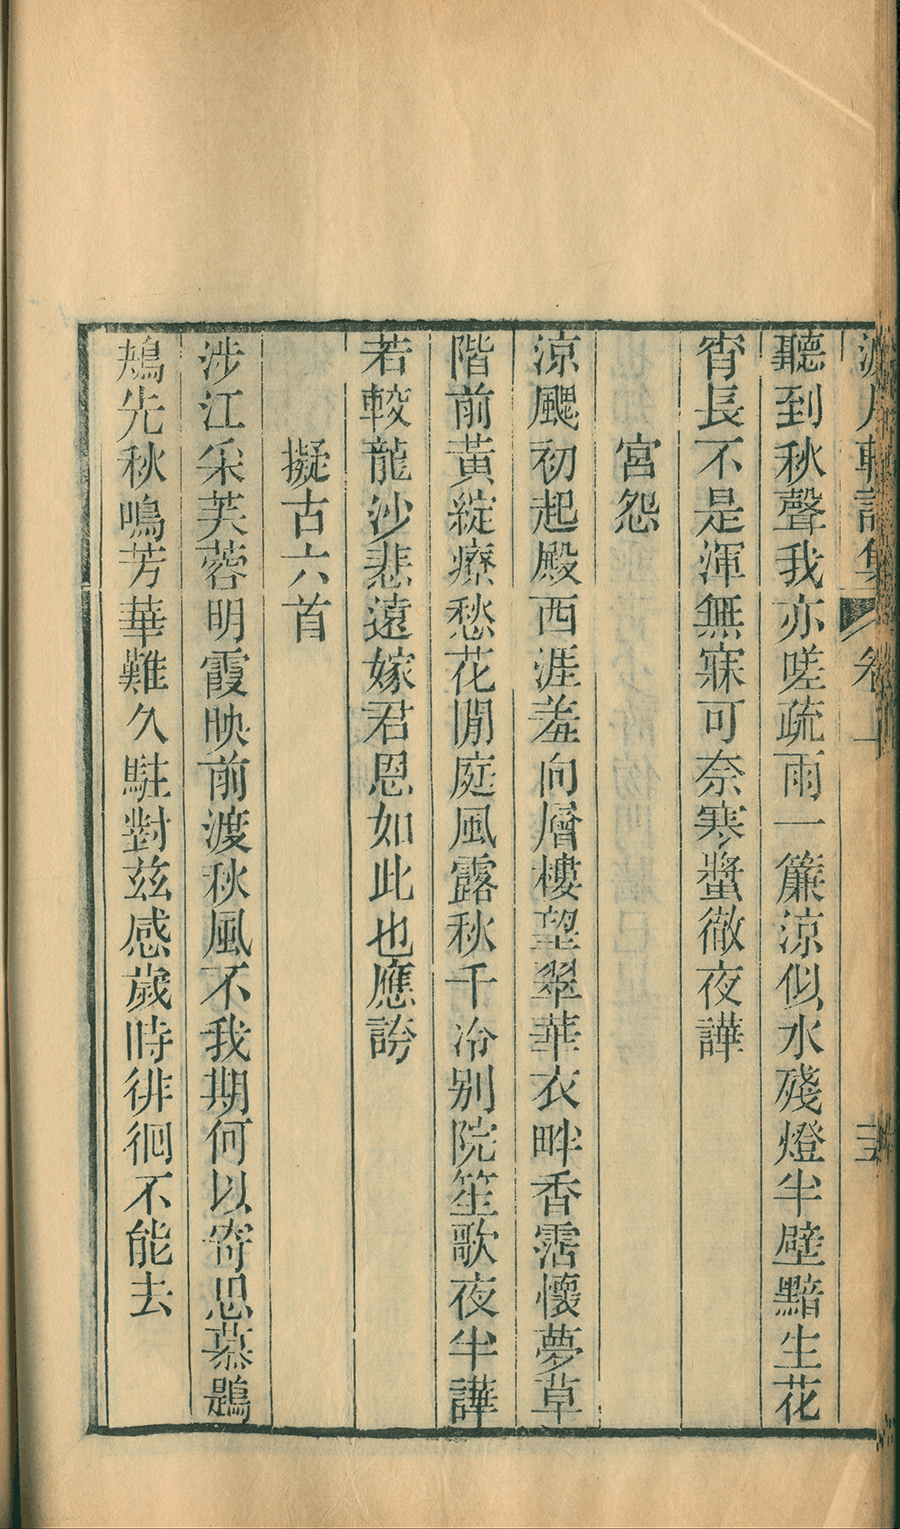 聽到秋聲我亦嗟疏雨一簾涼似水殘燈半壁黯生花
宵長不是渾無寐可奈寒螿徹夜譁
宮怨
涼颸初起殿西涯羞向層樓望翠華衣畔香霑懷夢草
階前黃綻療愁花閒庭風露秋千冷别院笙歌夜半譁
若較龍沙悲遠嫁君恩如此也應誇
擬古六首
涉江采芙蓉明霞映前渡秋風不我期何以寄思慕鶗
鴂先秋鳴芳華難久駐對茲感歲時徘徊不能去